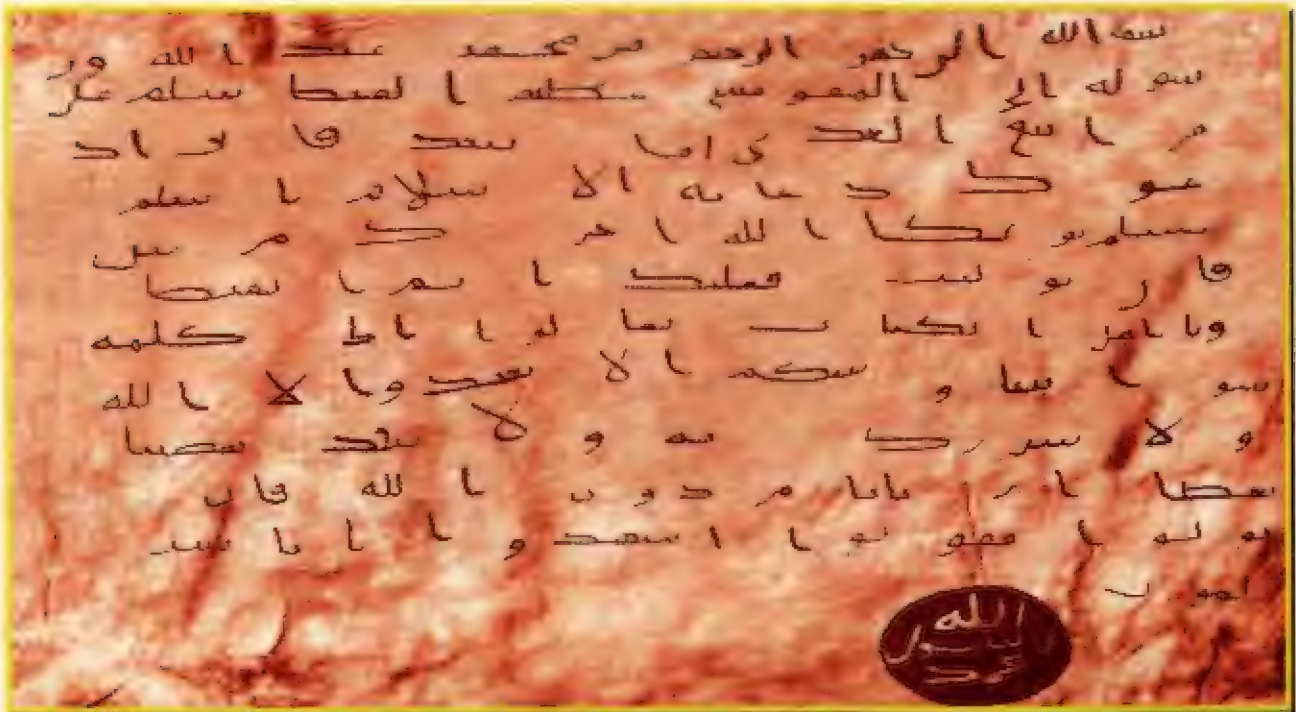 بسم الله الرحمن الرحيم من محمد عبد الله ور
سوله الى المقوقس عظيم القبط سلم على
من اتبع الهدى اما بعد فانى اد
عوك بدعاية الاسلام اسلم
تسلم يؤتك الله اجرك مرتين
فان توليت فعليك اثم القبط
ويا اهل الكتاب تعالوا الى كلمة
سوا بيننا وبينكم الا نعبد الا الله
ولا نشرك به ولا يتخذ بعضنا
بعضا اربابا من دون الله فان
تولوا فقولوا اشهدوا بانا مسـ
لمون
الله
رسول
محمد